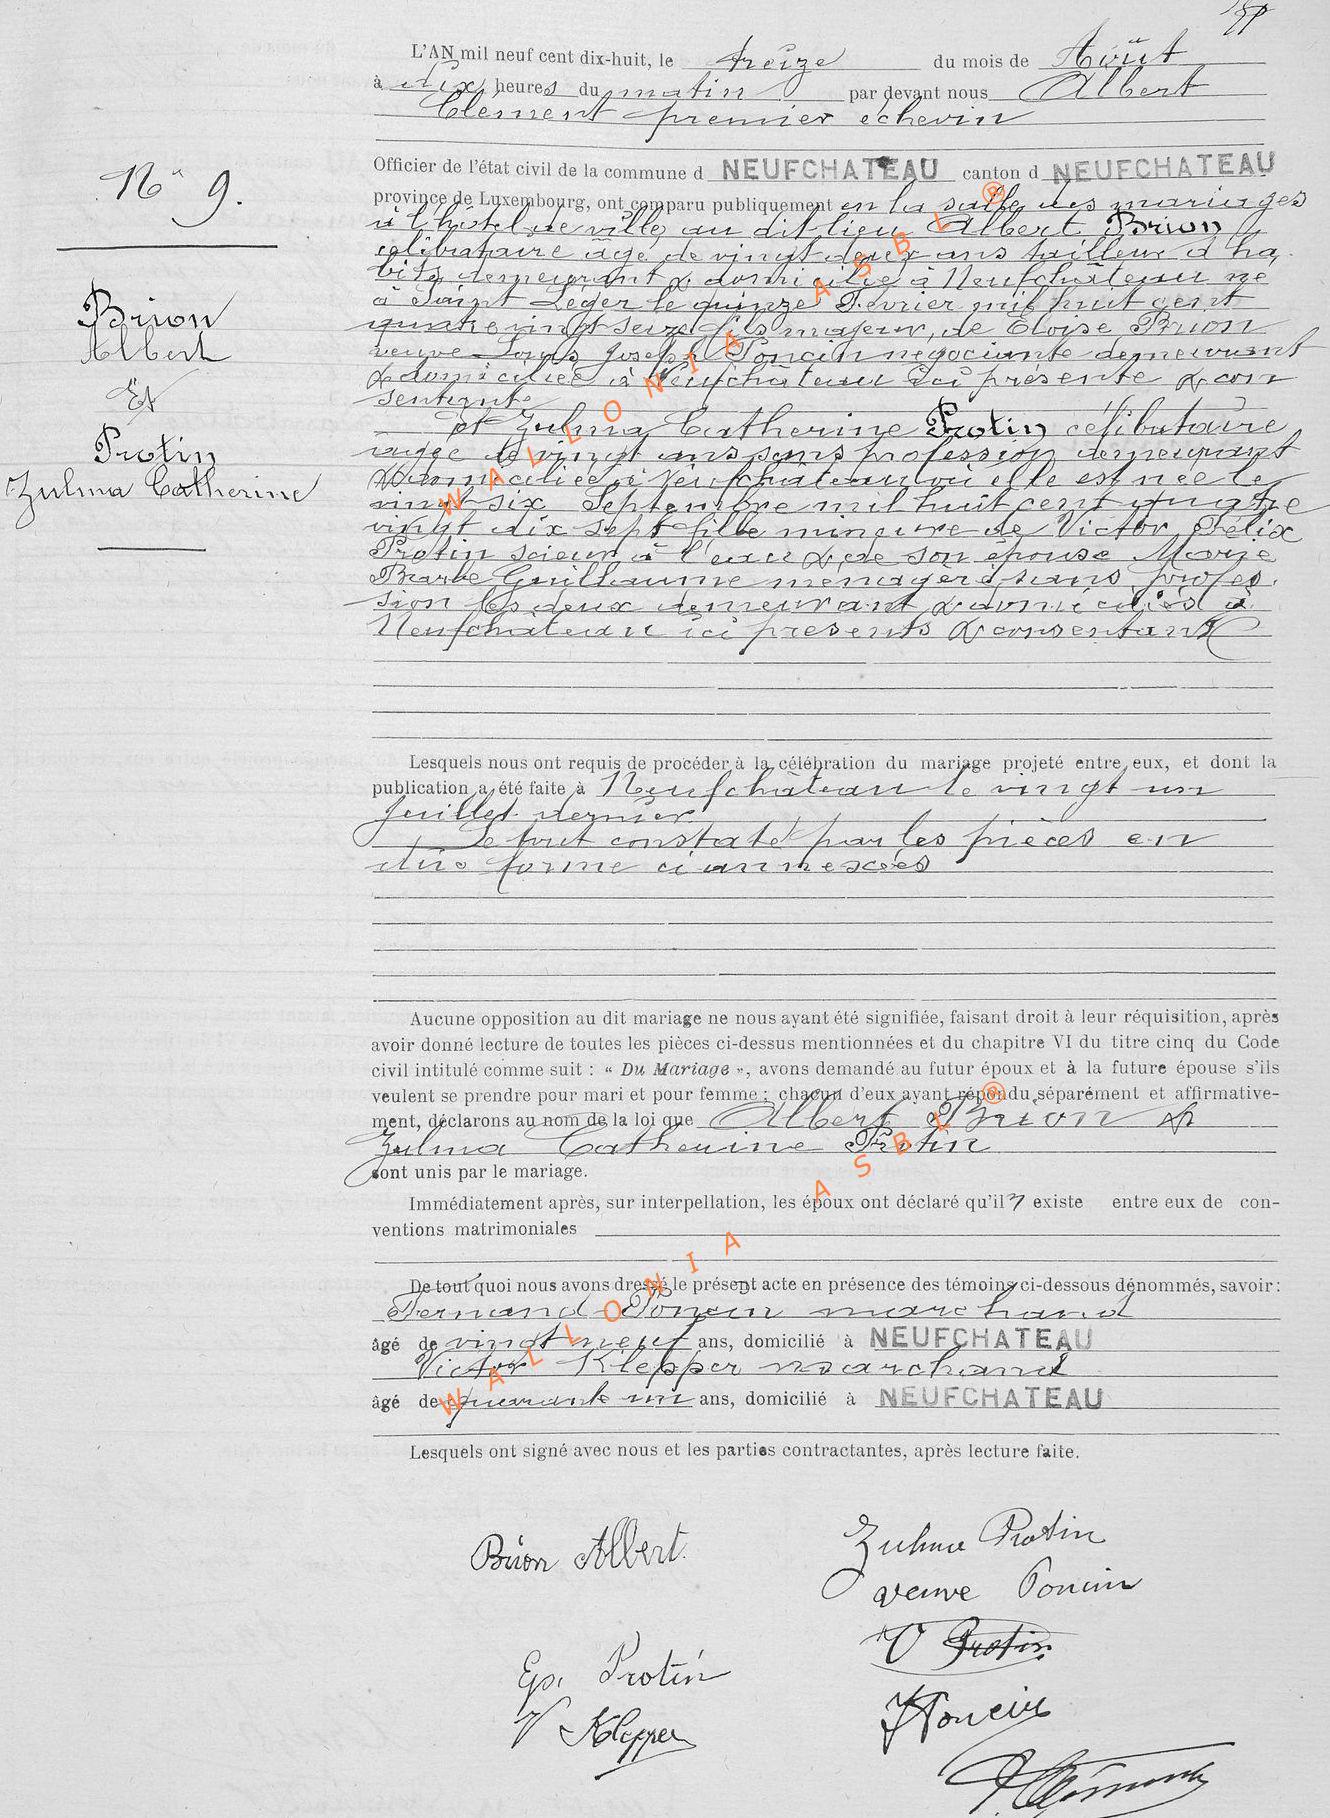 L'AN mil neuf cent dix-huit, le treize du mois de Août
à dix heures du matin par devant nous Albert
Clement premier échevin
Officier de l'état civil de la commune d NEUFCHATEAU canton d NEUFCHATEAU
province de Luxembourg, ont comparu publiquement en la salle des mariages
à l'hôtel de ville au dit lieu Albert Brion
célibataire âgé de vingt deux ans tailleur d'ha
bits demeurant & domicilié à Neufchâteau né
à Saint Léger le quinze Février mil huit cent
quatre vingt seize fils majeur, de Eloïse Brion
veuve Louis Joseph Poncin négociante demeurant
& domiciliée à Neufchâteau ici présente & con
sentante
et Zulma Catherine Protin célibataire
agée de vingt ans sans profession demeurant
& domiciliée à Neufchâteau où elle est née le
vingt six Septembre mil huit cent quatre
vingt dix sept fille mineure de Victor Félix
Protin scieur à l'eau & de son épouse Marie
Barbe Guillaume ménagère, sans profes
sion les deux demeurant & domiciliés à
Neufchâteau ici présents & consentant
N° 9.
Brion
Albert
Et
Protin
Zulma Catherine
Lesquels nous ont requis de procéder à la célébration du mariage projeté entre eux, et dont la
publication a été faite à Neufchâteau le vingt un
Juillet dernier
Le tout constaté par les pièces en
due forme ci annexées
Aucune opposition au dit mariage ne nous ayant été signifiée, faisant droit à leur réquisition, après
avoir donné lecture de toutes les pièces ci-dessus mentionnées et du chapitre VI du titre cinq du Code
civil intitulé comme suit : « Du Mariage », avons demandé au futur époux et à la future épouse s'ils
veulent se prendre pour mari et pour femme ; chacun d'eux ayant répondu séparément et affirmative-
ment, déclarons au nom de la loi que Albert Brion &
Zulma Catherine Protin
sont unis par le mariage.
Immédiatement après, sur interpellation, les époux ont déclaré qu'il existe entre eux de con-
ventions matrimoniales
De tout quoi nous avons dressé le présent acte en présence des témoins ci-dessous dénommés, savoir :
Fernand Poncin marchand
âgé de vingt neuf ans, domicilié à NEUFCHATEAU
Victor Klepper marchand
âgé de quarante un ans, domicilié à NEUFCHATEAU
Lesquels ont signé avec nous et les parties contractantes, après lecture faite.
Brion Albert. Zulma Protin
veuve Poncin
V Protin
Ep. Protin
F Poncin
V Klepper
A Clément
WALLONIA ASBL ®
WALLONIA ASBL ®